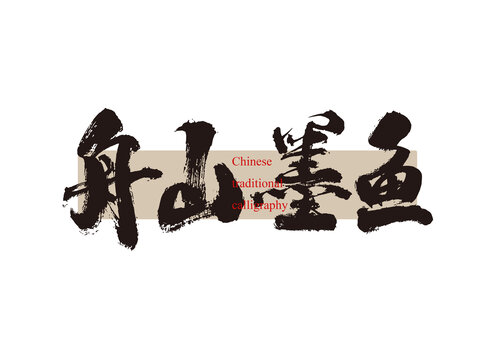 舟山墨鱼
Chinese
traditional
calligraphy